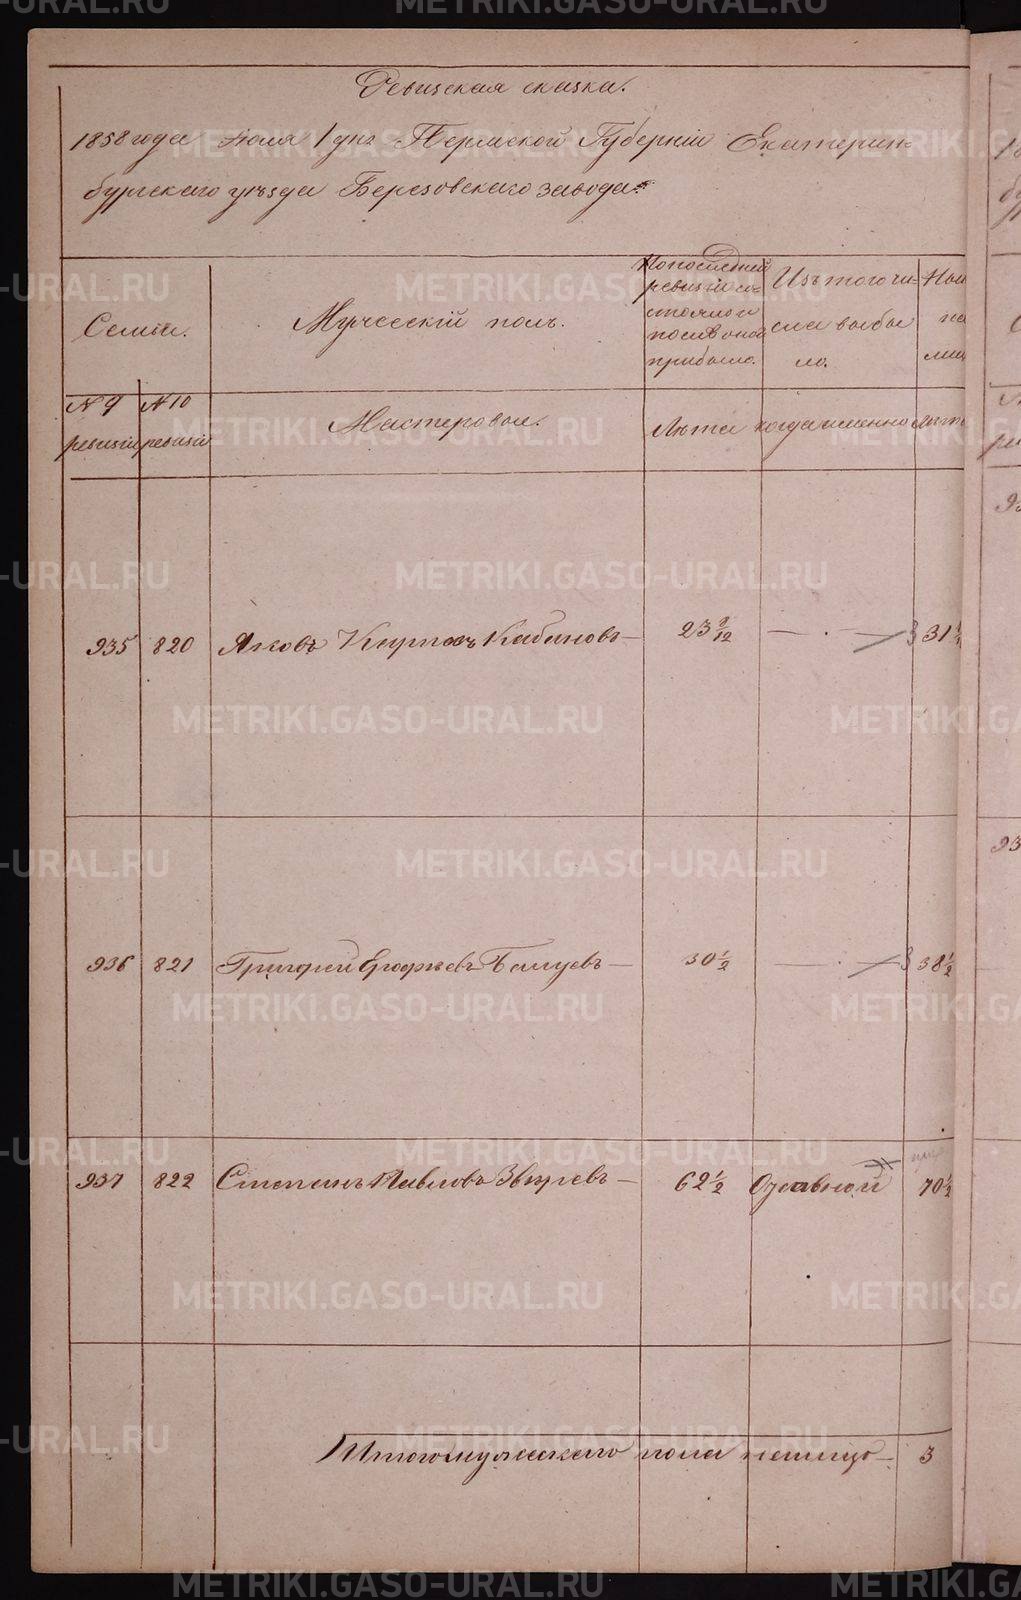 Ревизская сказка.
1858 года Іюля 1 дня Пермской Губерніи Екатерин-
бургскаго уѣзда Березовскаго завода.
Семьи.
Мужескій полъ.
По последней
ревизіи со-
стояло и
после оной
прибыло.
Изъ того чи-
сла выбы
ло.
№ 9
ревизіи
№ 10
ревизіи
Мастеровые.
Лѣта
когда именно
Лѣта
935 820 Яковъ Кабановъ 23 9/12 31
936 821 Григорий Ерофѣевъ 30 1/2 38 1/2
937 822 Степанъ Павловъ Звѣревъ 62 1/2 70 1/2
Итого мужескаго пола налицо 3
METRIKI.GASO-URAL.RU